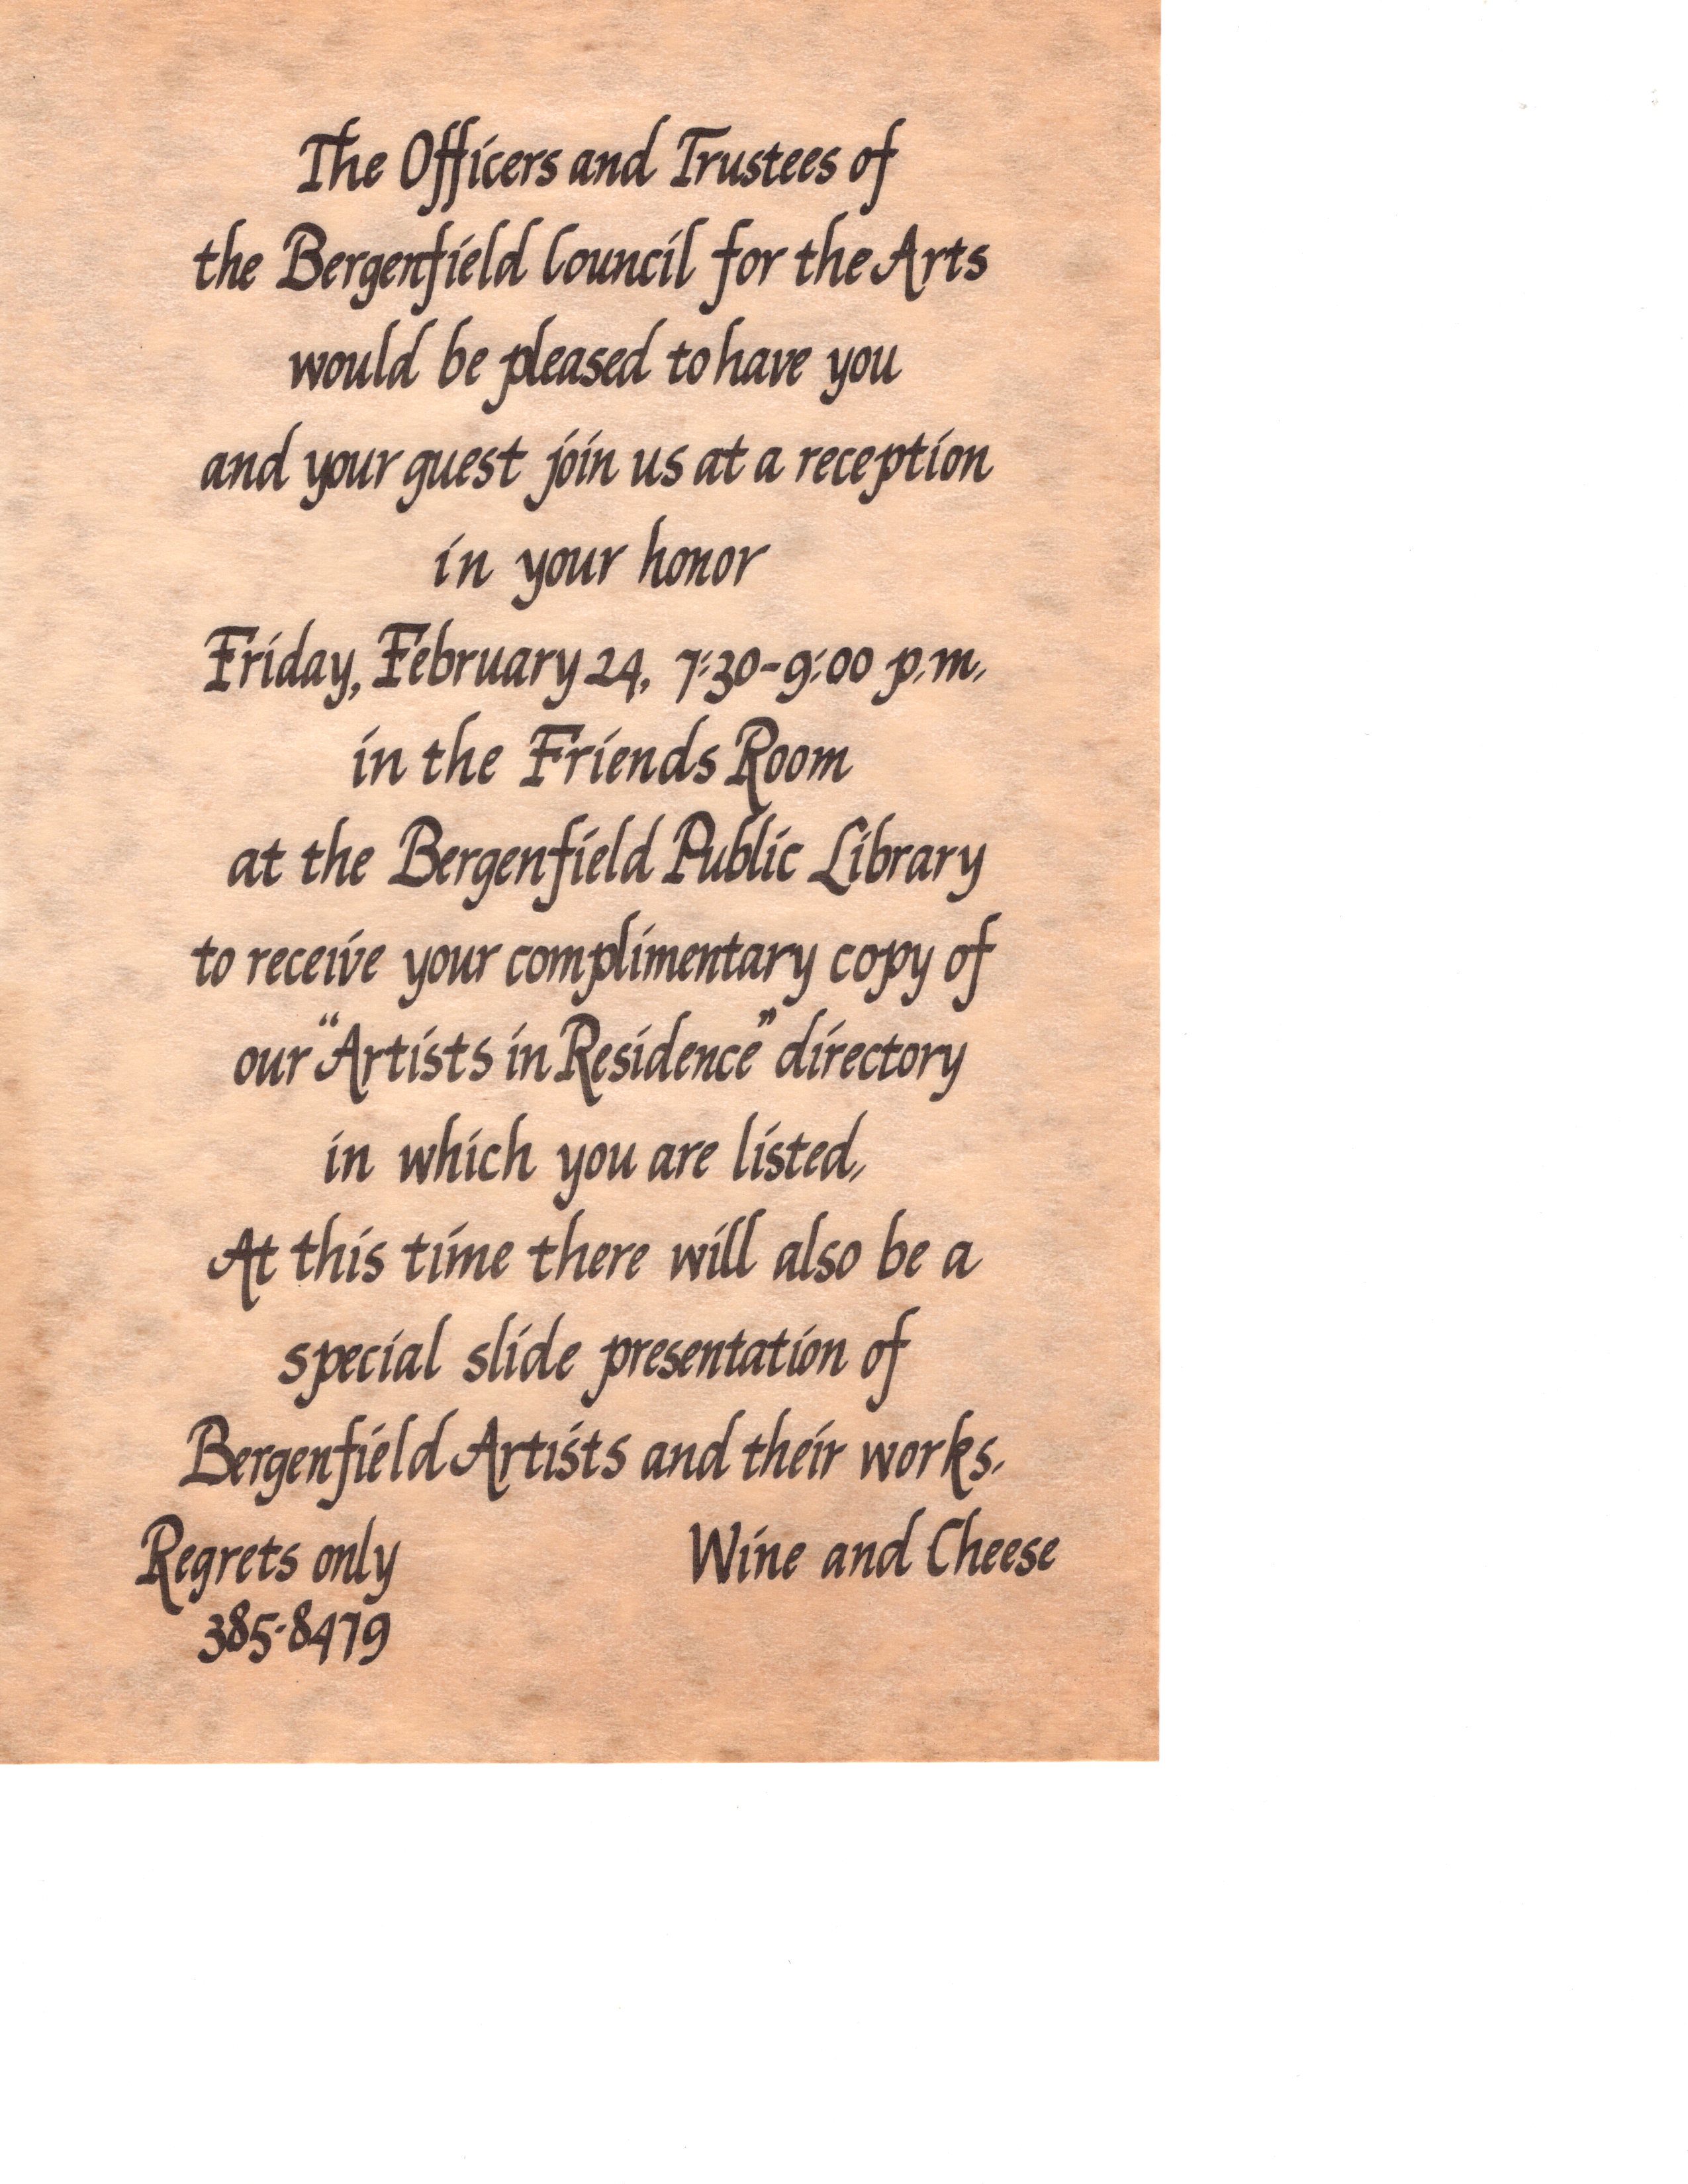 The Officers and Trustees of
the Bergenfield Council for the Arts
would be pleased to have you
and your guest join us at a reception
in your honor
Friday, February 24, 7:30-9:00 p.m.
in the Friends Room
at the Bergenfield Public Library
to receive your complimentary copy of
our "Artists in Residence" directory
in which you are listed.
At this time there will also be a
special slide presentation of
Bergenfield Artists and their works.
Regrets only Wine and Cheese
385-8479